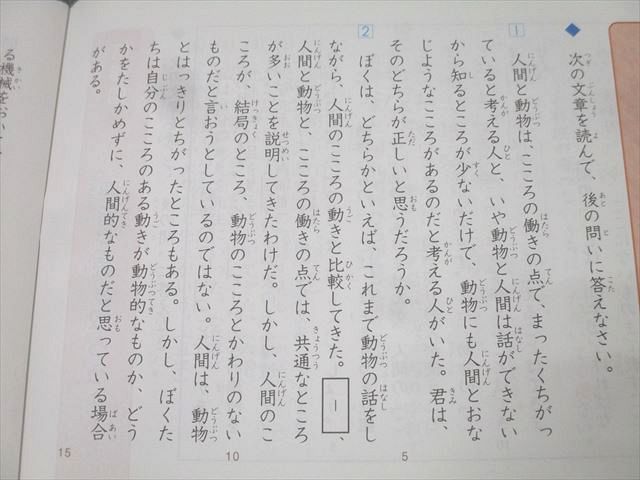 ◆ 次の文章を読んで、後の問いに答えなさい。
1 人間と動物は、こころの働きの点で、まったくちがっ
ていると考える人と、いや動物と人間は話ができない
から知るところが少ないだけで、動物にも人間とおな
じようなこころがあるのだと考える人がいた。君は、
そのどちらが正しいと思うだろうか。
2 ぼくは、どちらかといえば、これまで動物の話をし
ながら、人間のこころの動きと比較してきた。 Ⅰ 、
人間と動物と、こころの働きの点では、共通なところ
が多いことを説明してきたわけだ。しかし、人間のこ
ころが、結局のところ、動物のこころとかわりのない
ものだと言おうとしているのではない。人間は、動物
とはっきりとちがったところもある。しかし、ぼくた
ちは自分のこころのある動きが動物的なものか、どう
かをたしかめずに、人間的なものだと思っている場合
がある。
5
10
15
る機械をおいて